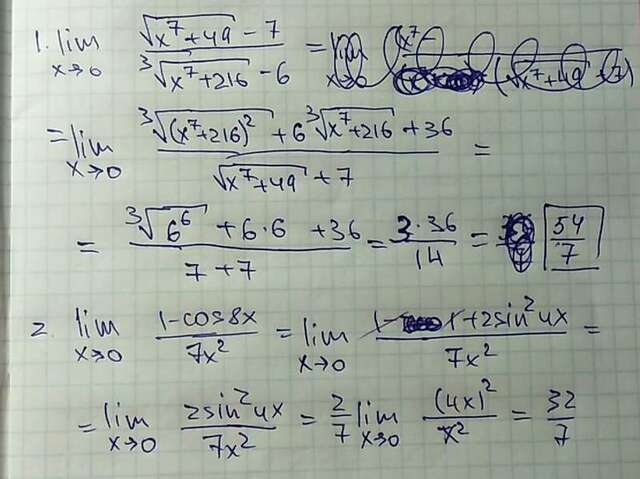 1. lim x→0 (√(x⁷+49) - 7)/(³√(x⁷+216) - 6) = lim x→0
= lim x→0 (³√((x⁷+216)²) + 6 ³√(x⁷+216) + 36)/(√(x⁷+49) + 7) =
= (³√(6⁶) + 6·6 + 36)/(7+7) = (3·36)/14 = 54/7
2. lim x→0 (1-cos8x)/(7x²) = lim x→0 (1-1+2sin²4x)/(7x²) =
= lim x→0 (2sin²4x)/(7x²) = 2/7 lim x→0 (4x)²/x² = 32/7